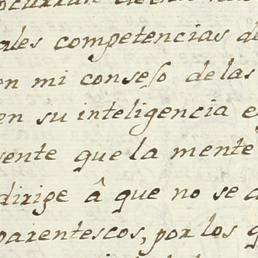 ales competencias de
en mi conseso de las
en su inteligencia e
sente que la mente
dirige â que no se c
parentescos, por los q